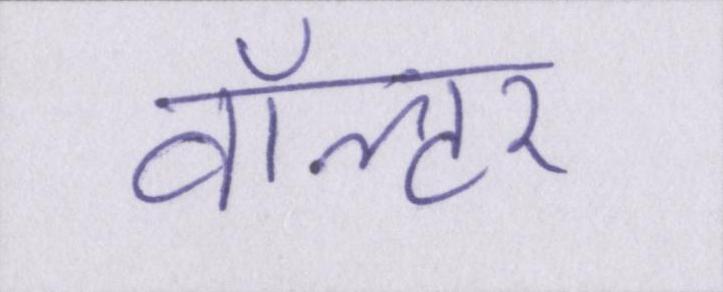 वॉल्टर